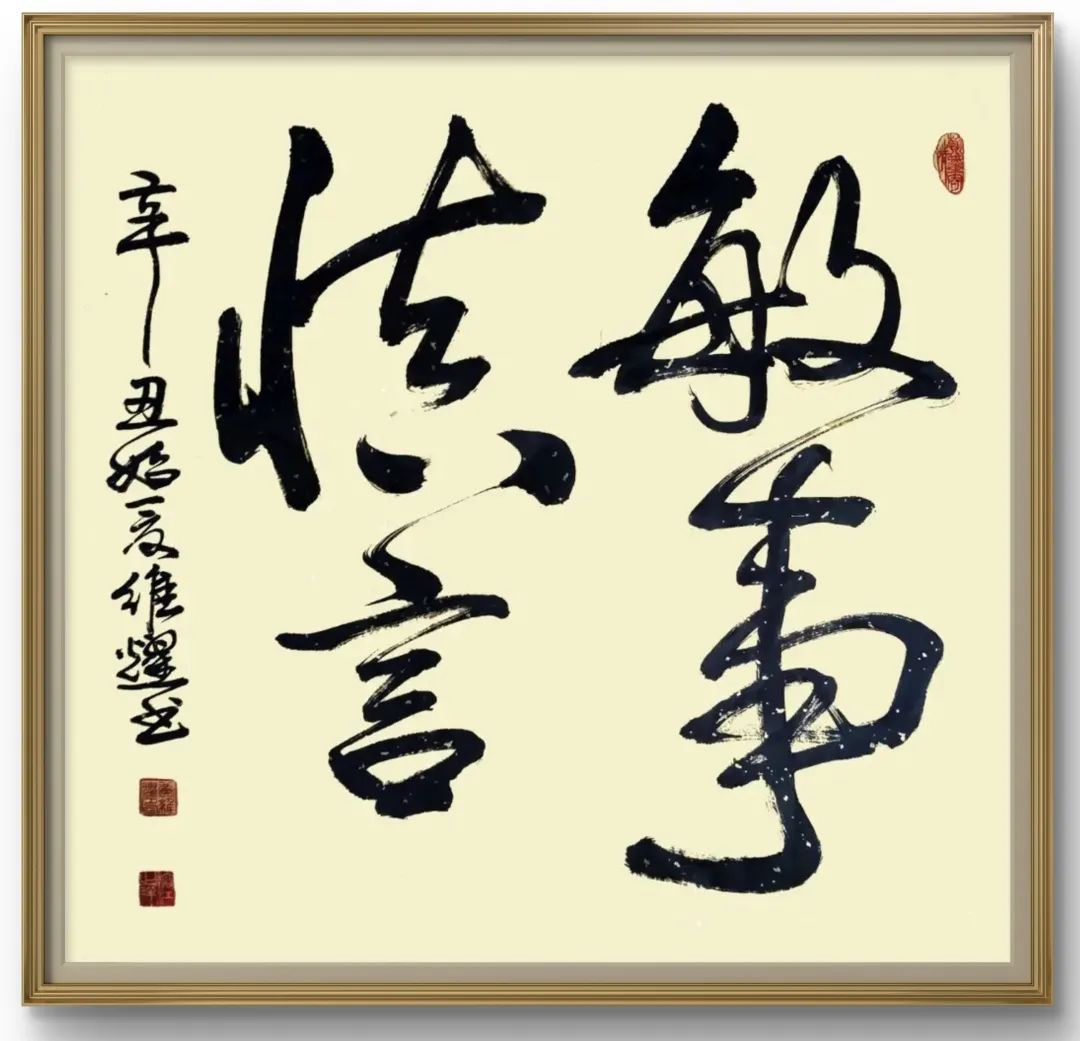 敏事
慎言
辛丑始夏维耀书